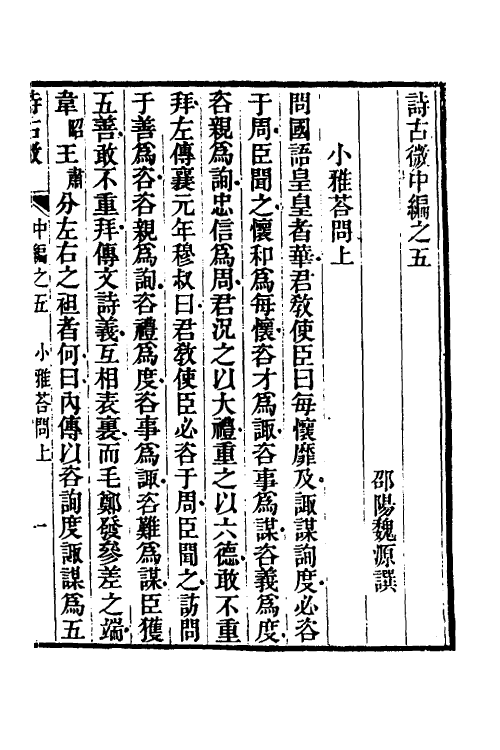 詩古微中編之五
邵陽魏源譔
小雅荅問上
問國語皇皇者華君敎使臣曰每懷靡及諏謀詢度必咨
于周臣聞之懷和爲每懷咨才爲諏咨事爲謀咨義爲度
咨親爲詢忠信爲周君況之以大禮重之以六德敢不重
拜左傳襄元年穆叔曰君敎使臣必咨于周臣聞之訪問
于善爲咨咨親爲詢咨禮爲度咨事爲諏咨難爲謀臣獲
五善敢不重拜傳文詩義互相表裏而毛鄭發參差之端
韋昭王肅分左右之袒者何曰內傳以咨詢度諏謀爲五
詩古微 中編之五 小雅荅問上 一